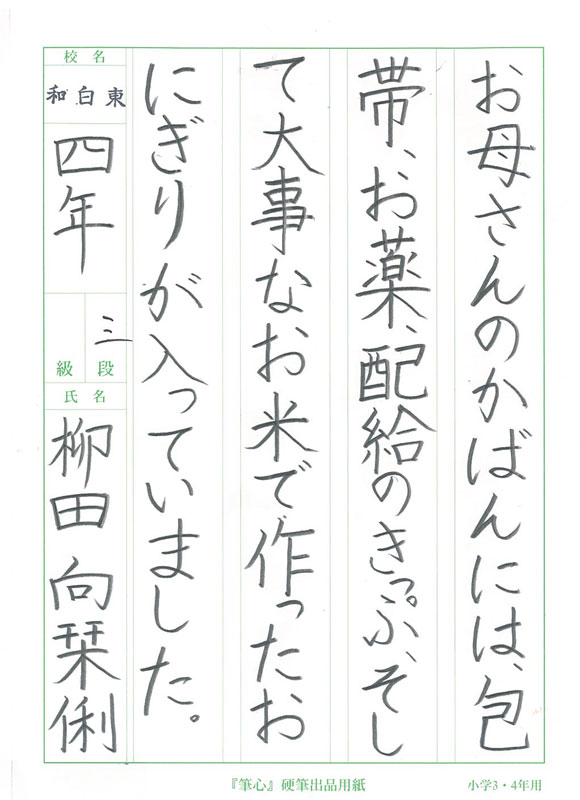 お母さんのかばんには、包
帯、お薬、配給のきっぷ、そし
て大事なお米で作ったお
にぎりが入っていました。
校名
和白東
四年
三
級 段
氏名
柳田 向栞俐
『筆心』硬筆出品用紙
小学3・4年用